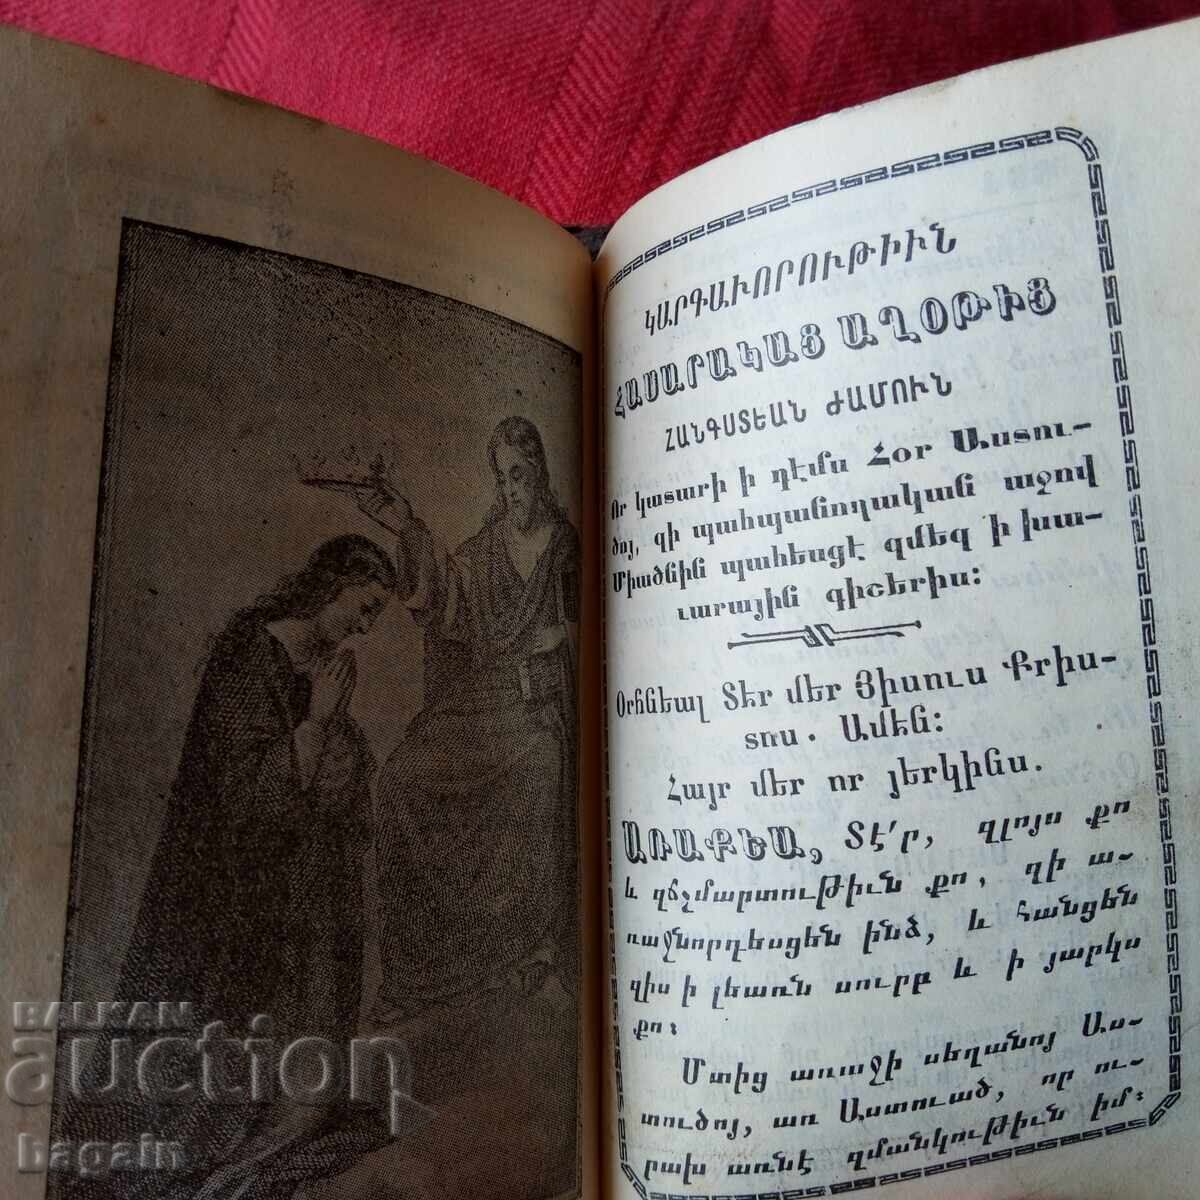 ԿԱՐԳԱՒՈՐՈՒԹԻՒՆ
ՀԱՍԱՐԱԿԱՑ ԱՂՕԹԻՑ
ՀԱՆԳՍՏԵԱՆ ԺԱՄՈՒՆ
Որ կատարի ի դէմս Հօր Աստու-
ծոյ, զի պահպանողական աջով
Միածնին պահեսցէ զմեզ ի խա-
ւարային գիշերիս:
Օրհնեալ Տէր մեր Յիսուս Քրիս-
տոս. Ամեն:
Հայր մեր որ յերկինս.
ԱՌԱՔԵԱ, Տէ՛ր, զլոյս քո
և զճշմարտութիւն քո, զի ա-
ռաջնորդեսցեն ինձ, և հանցեն
զիս ի լեառն սուրբ և ի յարկս
քո:
Մտից առաջի սեղանոյ Աս-
տուծոյ, առ Աստուած, որ ու-
րախ առնէ զմանկութիւն իմ:
BALKAN
auction
bagain